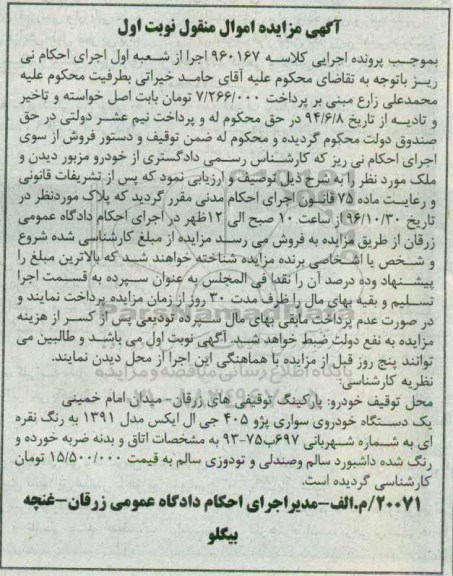 آگهی مزایده اموال منقول نوبت اول
بموجب پرونده اجرایی کلاسه ۹۶۰۱۶۷ اجرا از شعبه اول اجرای احکام نی
ریز باتوجه به تقاضای محکوم علیه آقای حامد خیراتی بطرفیت محکوم علیه
محمدعلی زارع مبنی بر پرداخت ۷/۲۶۶/۰۰۰ تومان بابت اصل خواسته و تاخیر
و تادیه از تاریخ ۹۴/۶/۸ در حق محکوم له و پرداخت نیم عشر دولتی در حق
صندوق دولت محکوم گردیده و محکوم له ضمن توقیف و دستور فروش از سوی
اجرای احکام نی ریز که کارشناس رسمی دادگستری از خودرو مزبور دیدن و
ملک مورد نظر را به شرح ذیل توصیف و ارزیابی نمود که پس از تشریفات قانونی
و رعایت ماده ۷۵ قانون اجرای احکام مدنی مقرر گردید که پلاک موردنظر در
تاریخ ۹۶/۱۰/۳۰ از ساعت ۱۰ صبح الی ۱۲ظهر در اجرای احکام دادگاه عمومی
زرقان از طریق مزایده به فروش می رسد مزایده از مبلغ کارشناسی شده شروع
و شخص یا اشخاصی برنده مزایده شناخته خواهند شد که بالاترین مبلغ را
پیشنهاد وده درصد آن را نقدا فی المجلس به عنوان سپرده به قسمت اجرا
تسلیم و بقیه بهای مال را ظرف مدت ۳۰ روز از زمان مزایده پرداخت نمایند و
در صورت عدم پرداخت مابقی بهای مال سپرده تودیعی پس از کسر از هزینه
مزایده به نفع دولت ضبط خواهد شد. آگهی نوبت اول می باشد و طالبین می
توانند پنج روز قبل از مزایده با هماهنگی این اجرا از محل دیدن نمایند.
نظریه کارشناسی:
محل توقیف خودرو: پارکینگ توقیفی های زرقان-میدان امام خمینی
یک دستگاه خودروی سواری پژو ۴۰۵ جی ال ایکس مدل ۱۳۹۱ به رنگ نقره
ای به شماره شهربانی ۶۹۷ب۷۵-۹۳ به مشخصات اتاق و بدنه ضربه خورده و
رنگ شده داشبورد سالم وصندلی و تودوزی سالم به قیمت ۱۵/۵۰۰/۰۰۰ تومان
کارشناسی گردیده است.
۲۰۰۷۱/م.الف-مدیراجرای احکام دادگاه عمومی زرقان-غنچه
بیگلو